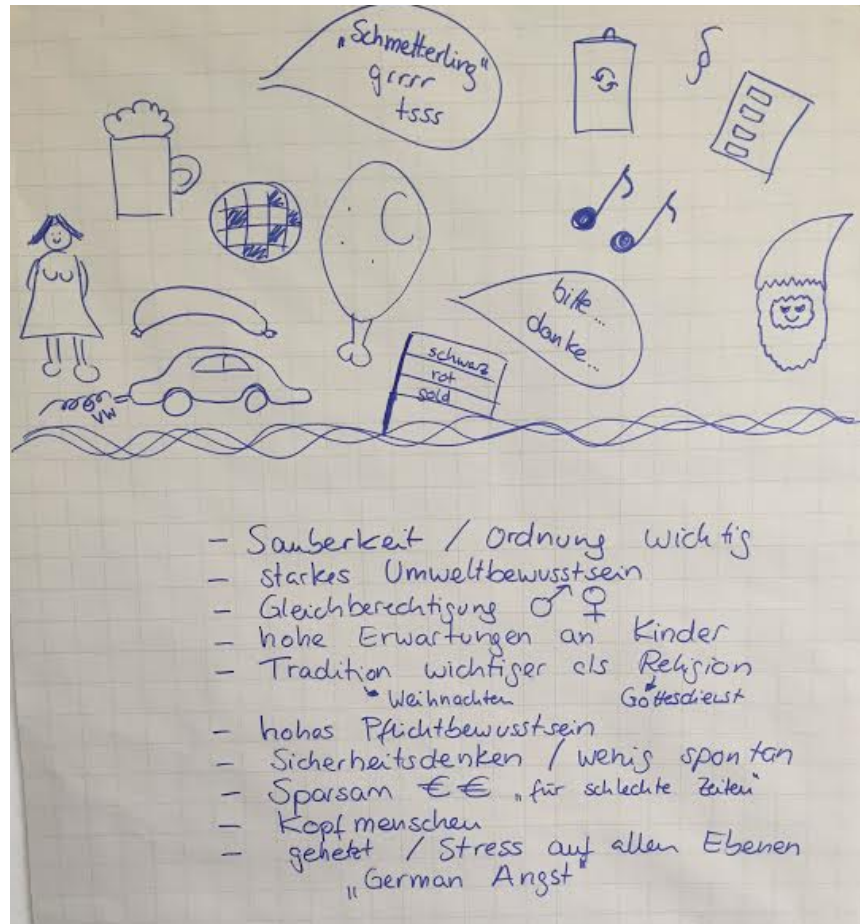 „Schmetterling"
grrrr
tsss
§
bitte...
danke...
schwarz
rot
gold
VW
- Sauberkeit / Ordnung wichtig
- starkes Umweltbewusstsein
- Gleichberechtigung ♂ ♀
- hohe Erwartungen an Kinder
- Tradition wichtiger als Religion
Weihnachten Gottesdienst
- hohes Pflichtbewusstsein
- Sicherheitsdenken / wenig spontan
- Sparsam €€ „für schlechte Zeiten"
- Kopfmenschen
- gehetzt / Stress auf allen Ebenen
„German Angst"